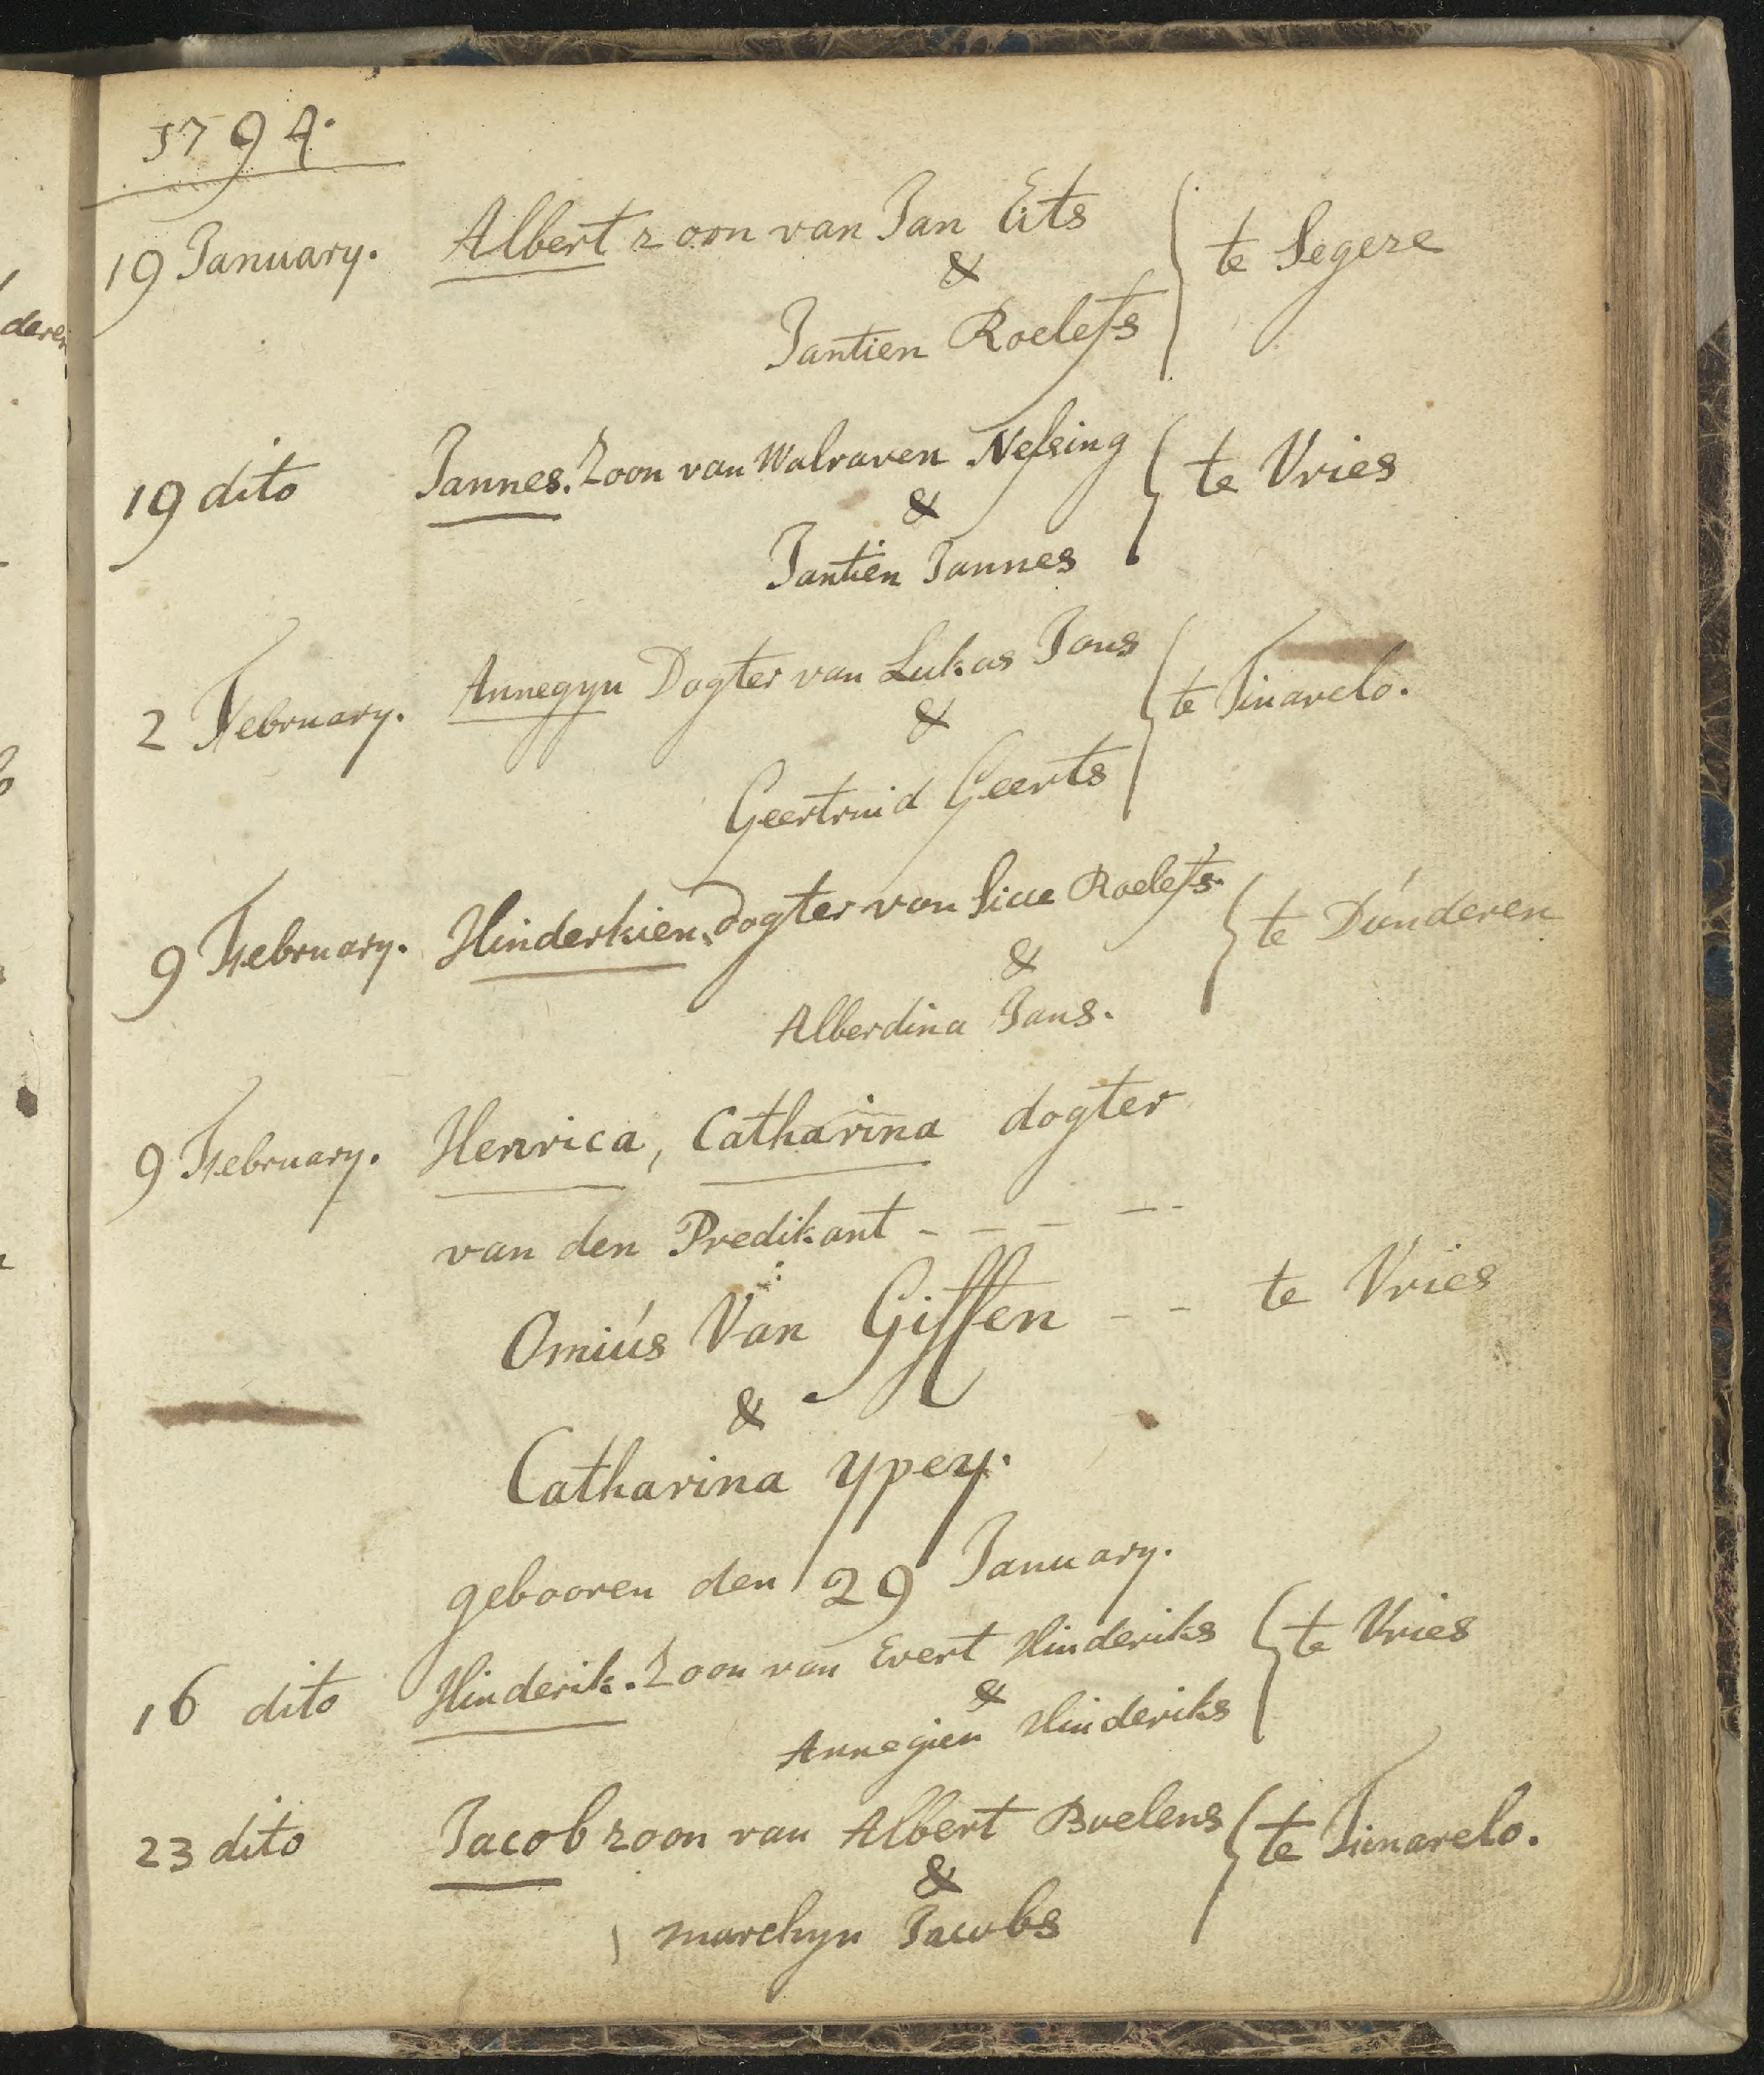 1794.
19 January. Albert zoon van Jan Eits
&
Jantien Roelefs
te Segere
19 dito Jannes. Zoon van Walraven Nessing
&
Jantien Jannes
te Vries
2 February. Annegyn Dogter van Lukas Jans
&
Geertruid Geerts
te Tinarelo.
9 February. Hinderkien. dogter van Roelefs
&
Alberdina Jans.
te Dúnderen
9 February. Henrica, Catharina dogter
van den Predikant - - - - -
Omiús Van Giffen - - te Vries
&
Catharina Ypey.
gebooren den 29 January.
16 dito Hinderik. Zoon van Evert Hinderiks
&
Annegien Hinderiks
te Vries
23 dito Jacob zoon van Albert Boelens
&
marchyn Jacobs
te Tinarelo.